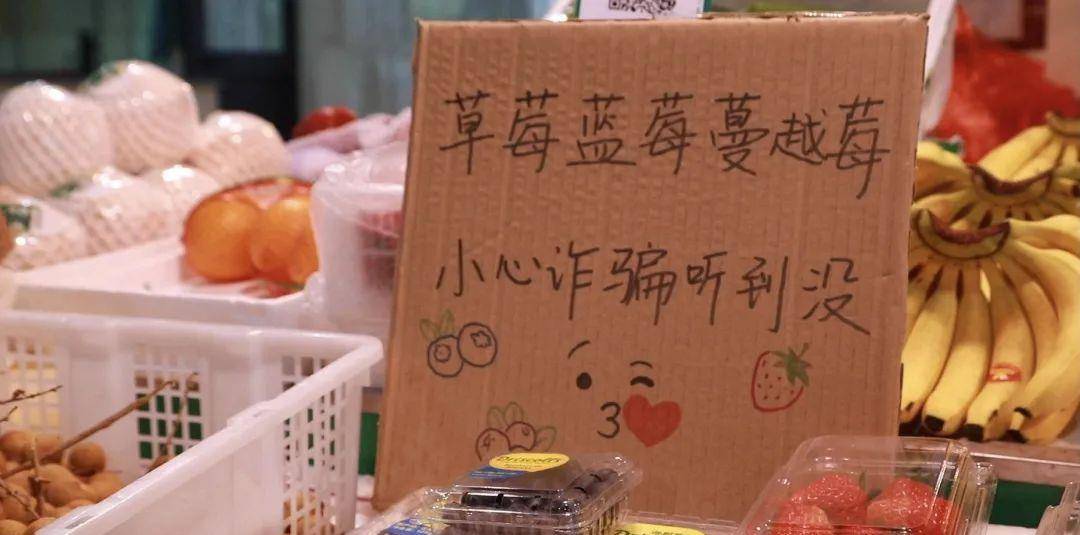 草莓蓝莓蔓越莓
小心诈骗听到没
Driscoll's